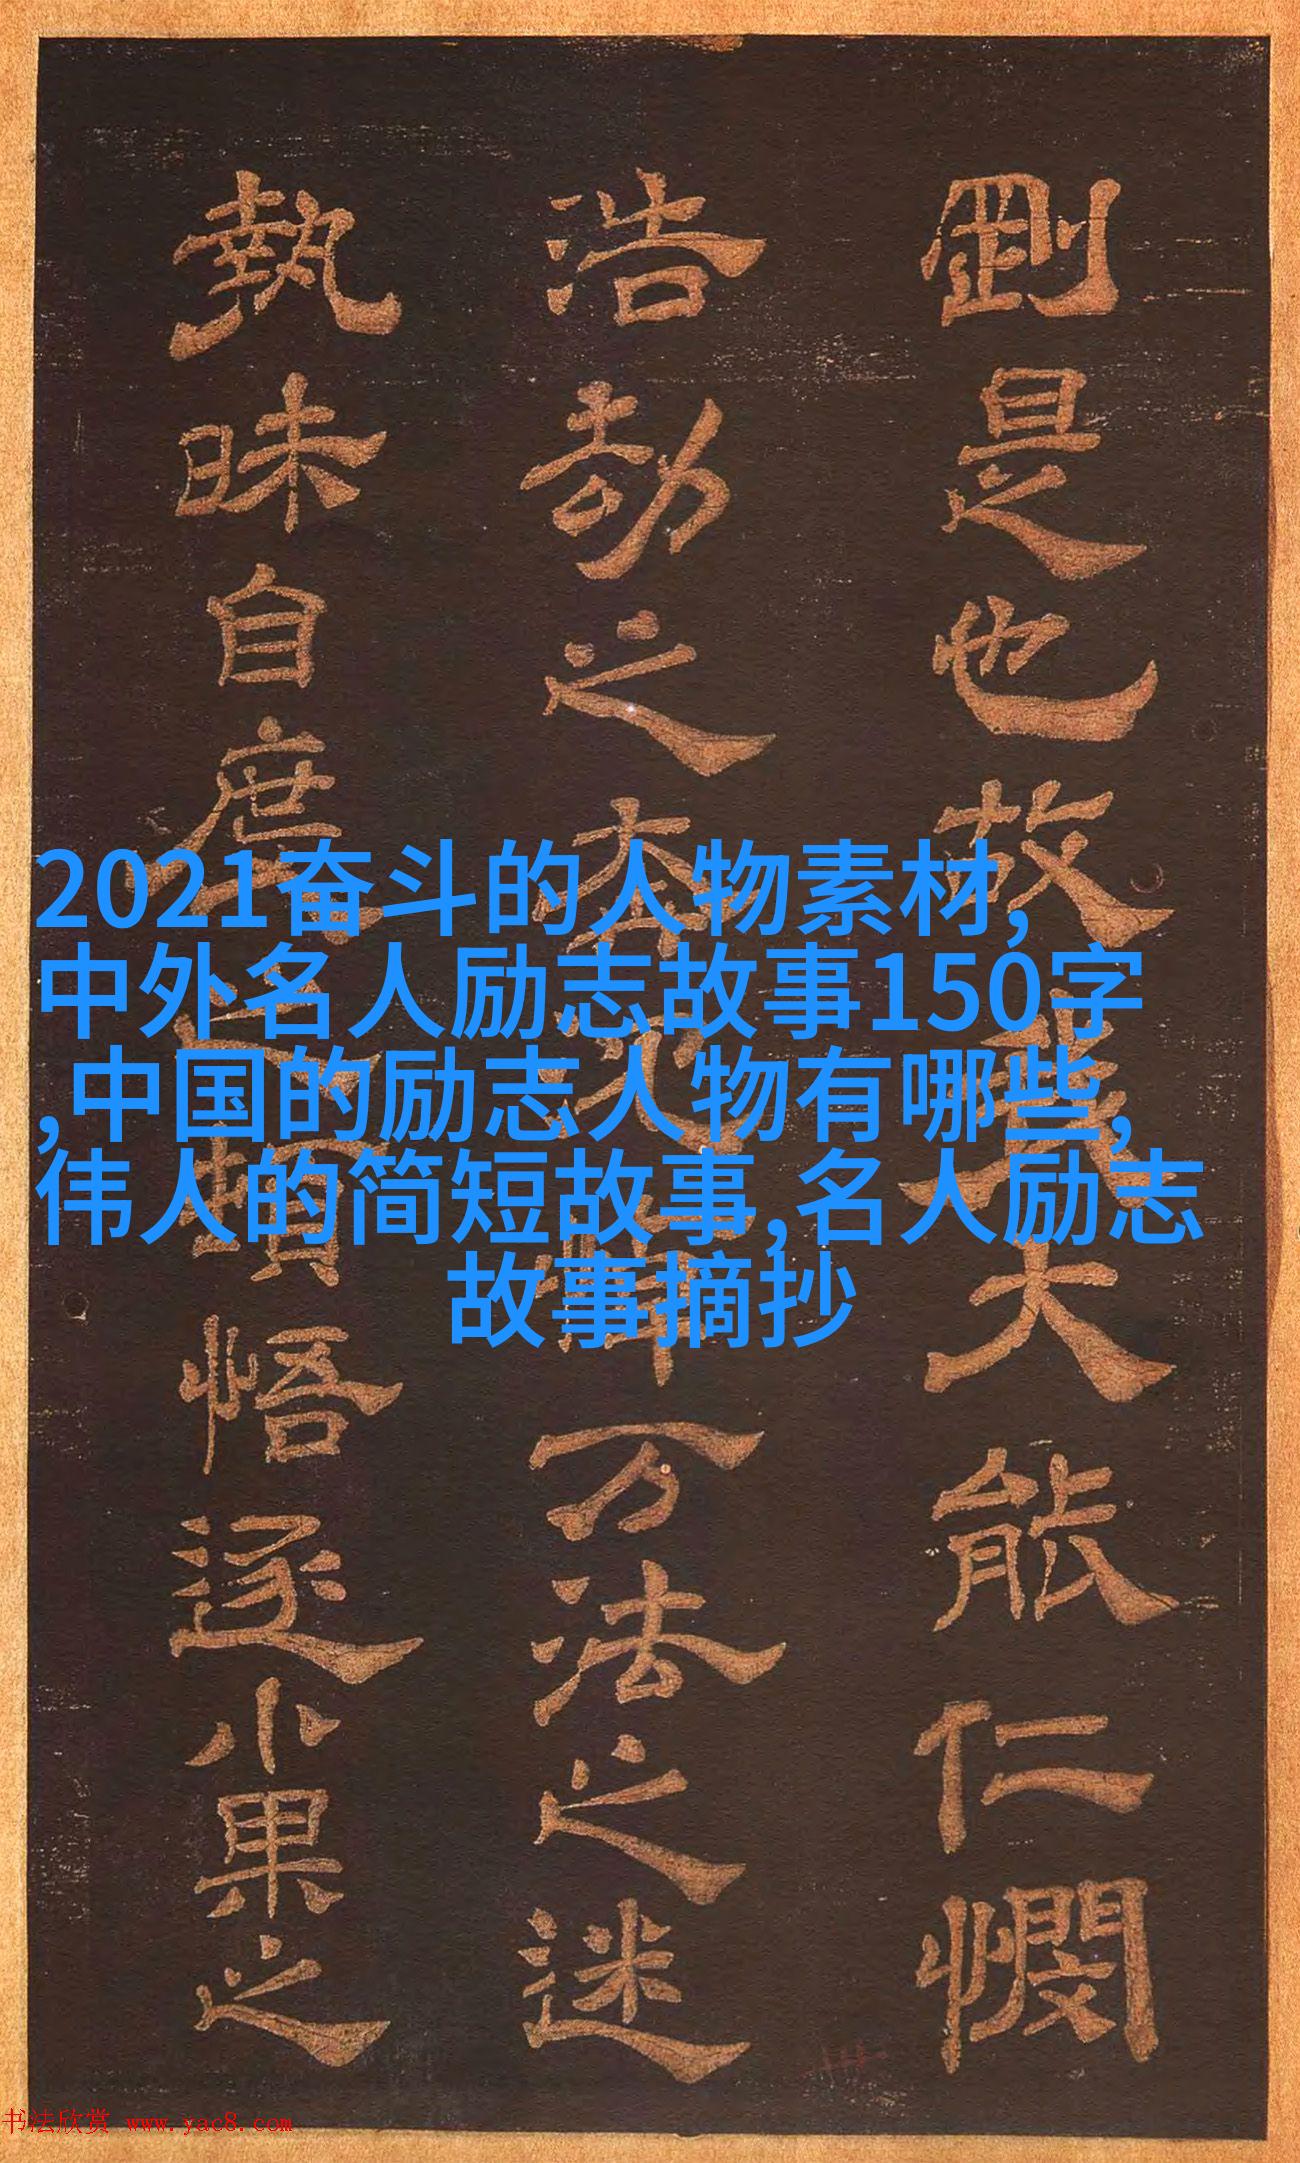 2021奋斗的人物素材,
中外名人励志故事150字
,中国的励志人物有哪些,
伟人的简短故事,名人励志
故事摘抄
剛是也故大能仁憫
浩劫之万法之迷
執昧自度悟遂小果之
书法欣赏 www.yac8.com